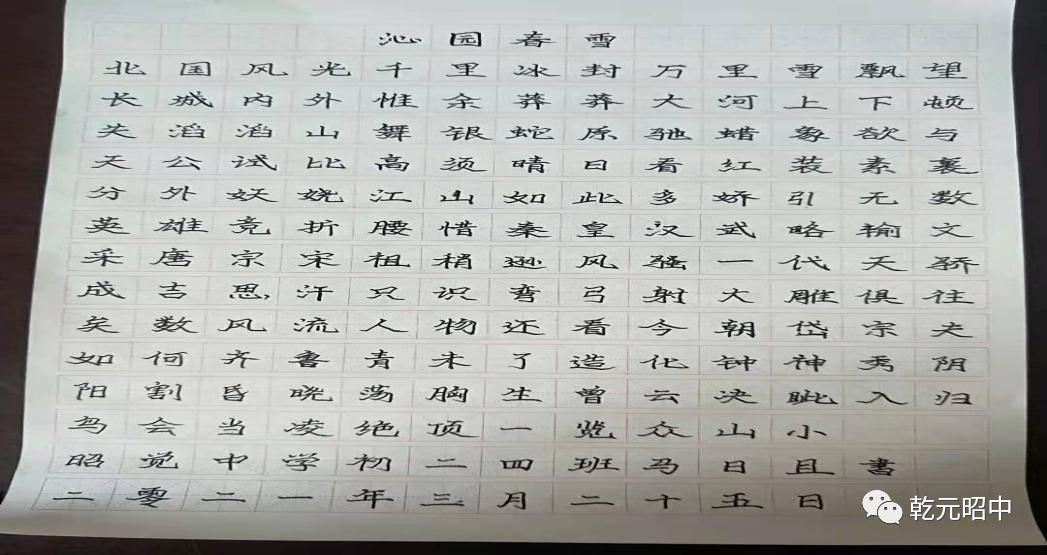 沁园春雪
北国风光千里冰封万里雪飘望
长城内外惟余莽莽大河上下顿
失滔滔山舞银蛇原驰蜡象欲与
天公试比高须晴日看红装素裹
分外妖娆江山如此多娇引无数
英雄竞折腰惜秦皇汉武略输文
采唐宗宋祖稍逊风骚一代天骄
成吉思汗只识弯弓射大雕俱往
矣数风流人物还看今朝岱宗夫
如何齐鲁青未了造化钟神秀阴
阳割昏晓荡胸生曾云决眦入归
鸟会当凌绝顶一览众山小
昭觉中学初二四班马日且書
二零二一年三月二十五日
乾元昭中